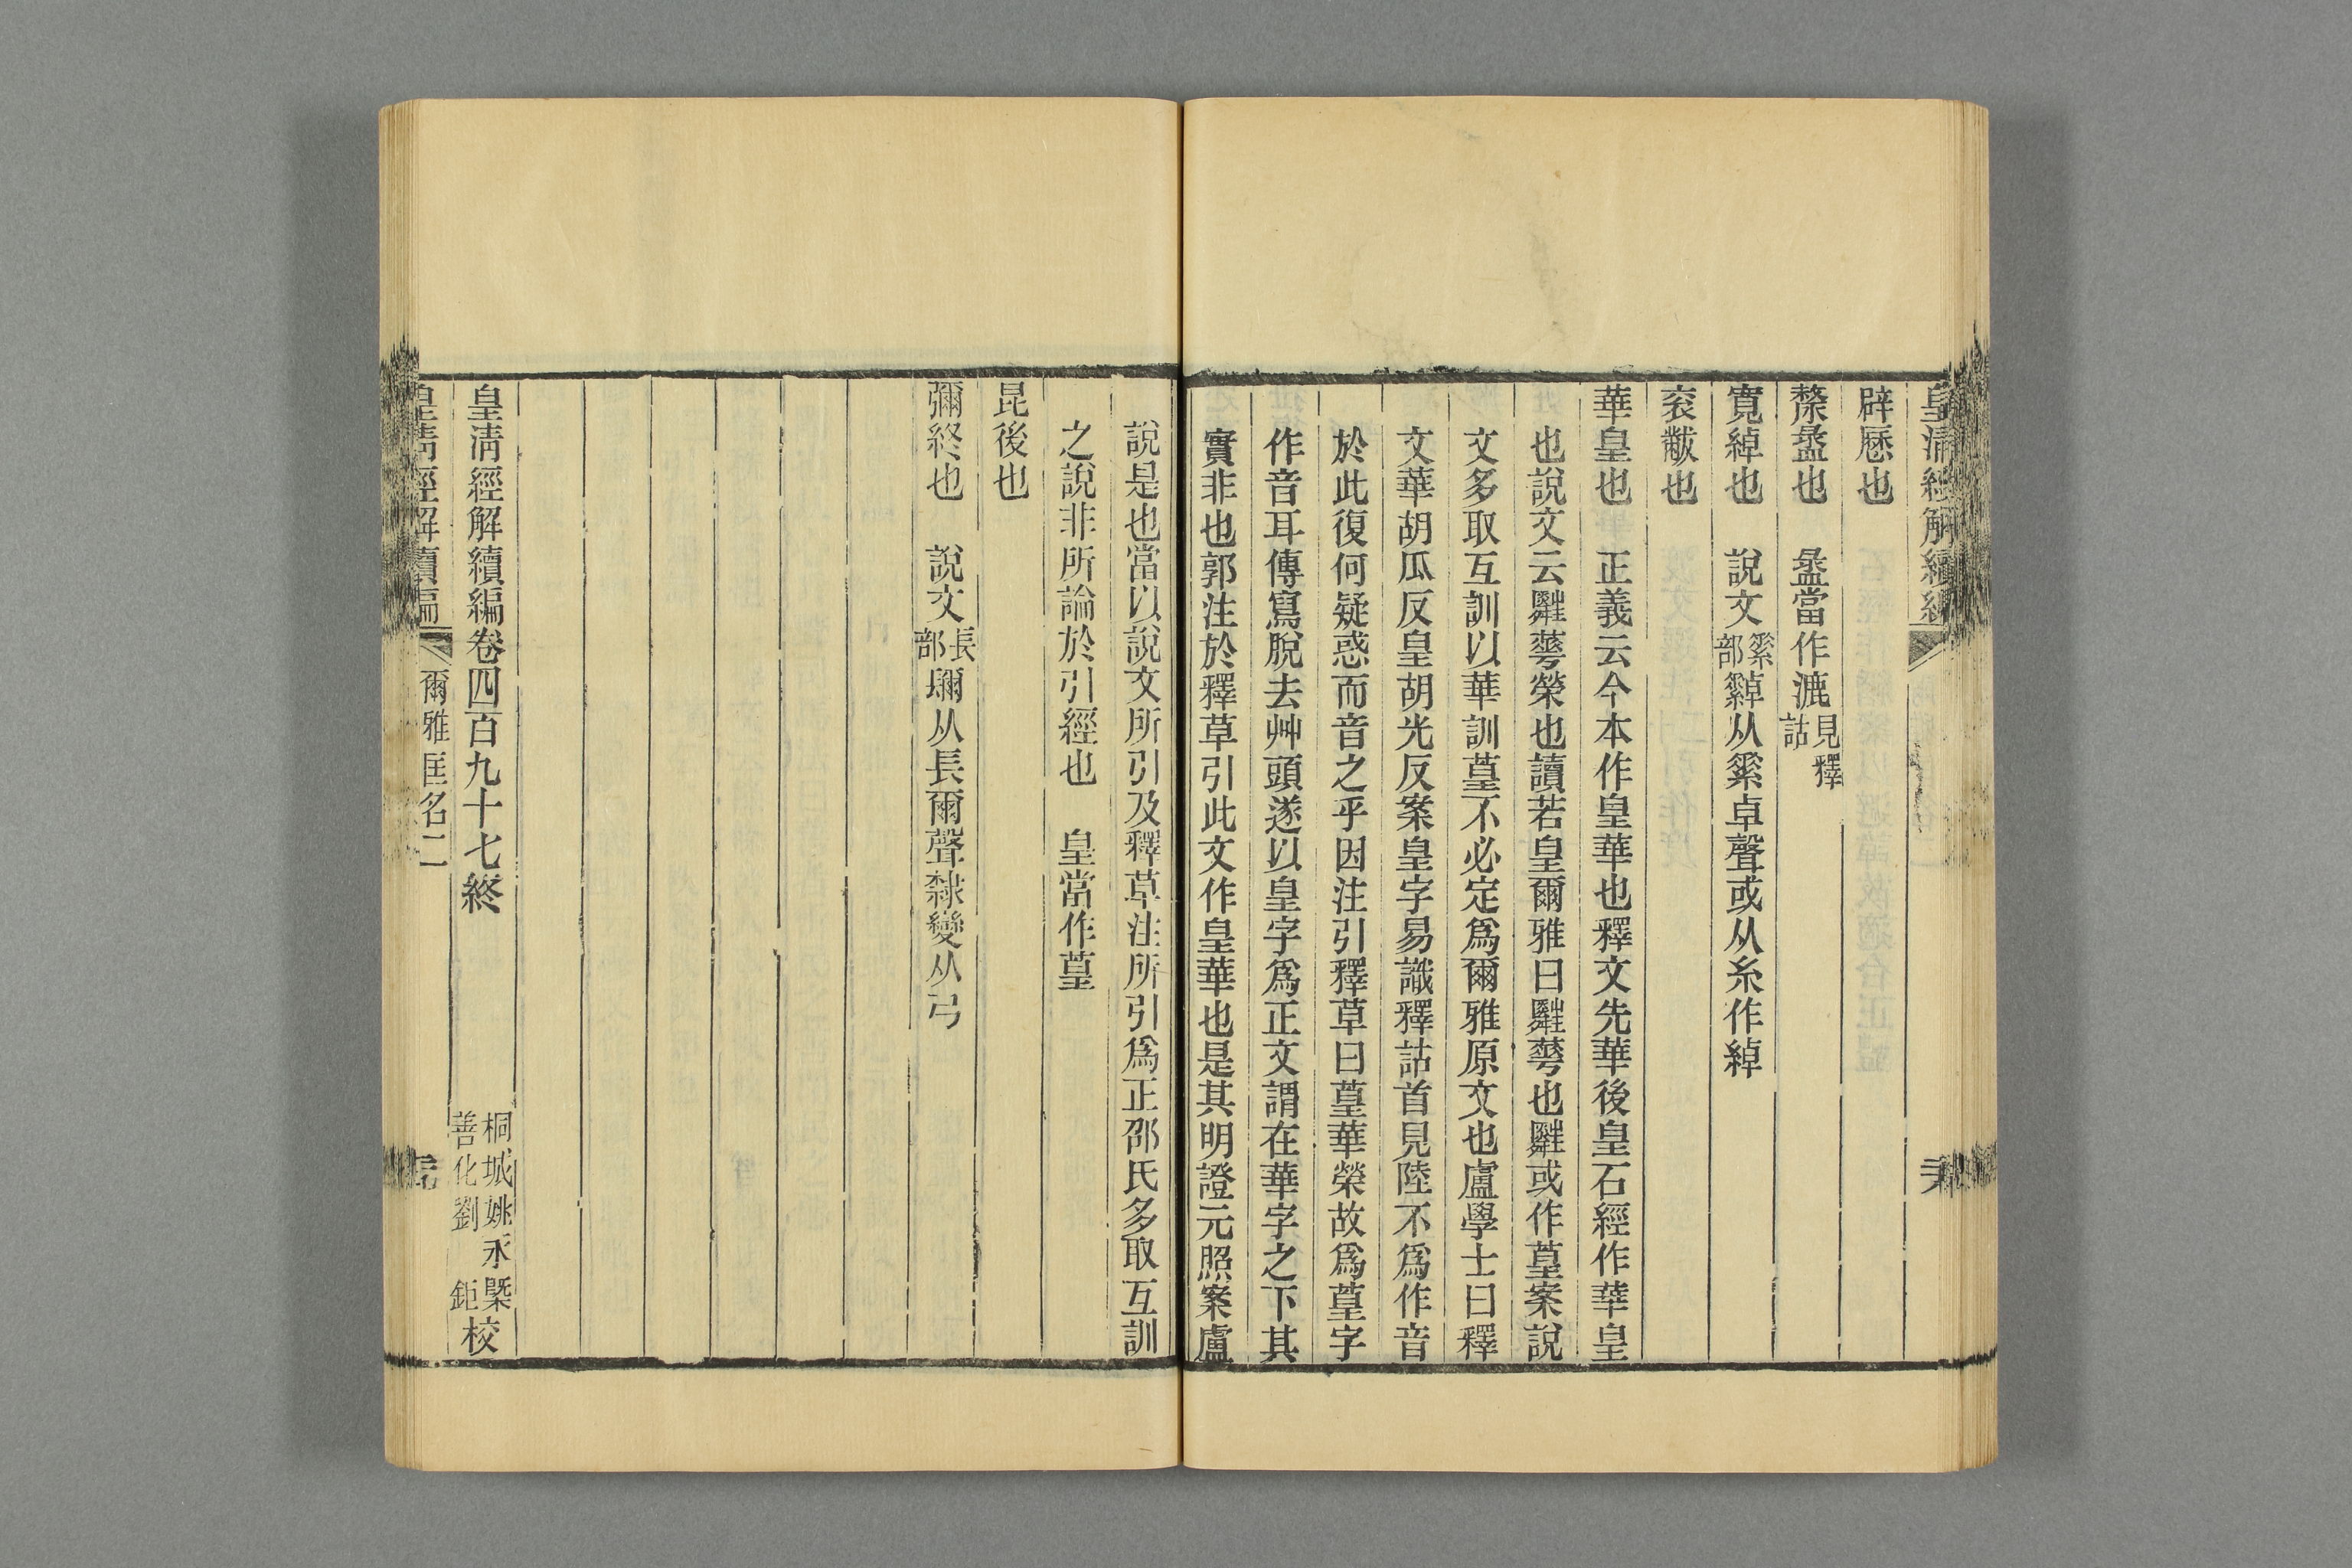 皇清經解續編
辟歷也
漦盝也　盝當作漉見釋詁
寬綽也　說文素部𦅫从素卓聲或从糸作綽
袞黻也
華皇也　正義云今本作皇華也釋文先華後皇石經作華皇
也說文云𩏊蕚榮也讀若皇爾雅曰𩏊蕚也𩏊或作葟案說
文多取互訓以華訓葟不必定爲爾雅原文也盧學士曰釋
文華胡瓜反皇胡光反案皇字易識釋詁首見陸不爲作音
於此復何疑惑而音之乎因注引釋草曰葟華榮故爲葟字
作音耳傳寫脫去艸頭遂以皇字爲正文謂在華字之下其
實非也郭注於釋草引此文作皇華也是其明證元照案盧
說是也當以說文所引及釋草注所引爲正邵氏多取互訓
之說非所論於引經也　皇當作葟
昆後也
彌終也　說文長部镾从長爾聲隸變从弓
皇清經解續編卷四百九十七終
桐城姚永㮣
善化劉　鉅校
皇清經解續編　爾雅匡名二